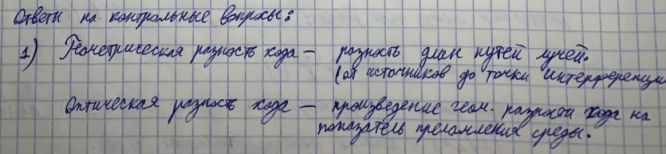 Ответы на контрольные вопросы:
1) Геометрическая разность хода — разность длин путей лучей.
(от источников до точки интерференци
Оптическая разность хода — произведение геом. разности хода на
показатель преломления среды.